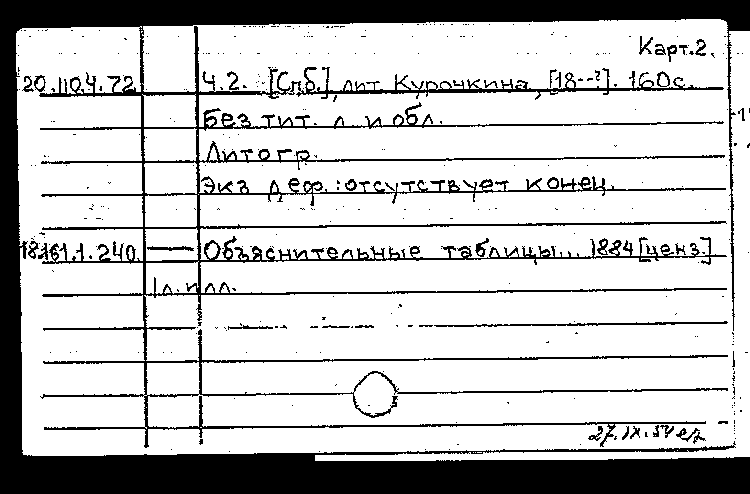 Карт.2.
20.110.4.72 Ч.2. [Спб.], лит. Курочкина, [18--?]. 160с.
Без тит. л. и обл.
Литогр.
Экз. деф.: отсутствует конец.
18.161.1.240. — Объяснительные таблицы... 1884 [ценз.]
1 л. илл.
27.IX.54